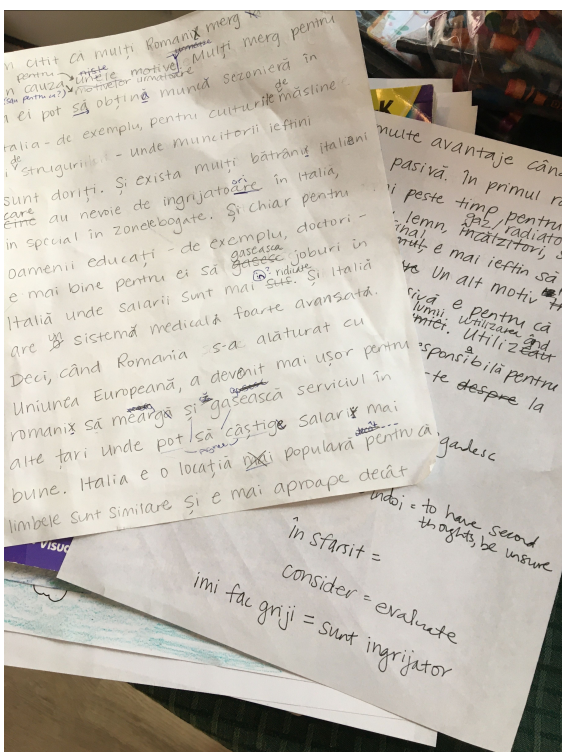 n citit ca mulți Romani merg
pentru niște românie
n cauza unele motive Mulți merg pentru
(sau pentru că?) motivelor următoare
a ei pot să obțină muncă sezonieră în
talia - de exemplu, pentru culturile de măsline
și de struguri - unde muncitorii ieftini
sunt doriți. Și exista mulți bătrâni italieni
care cine au nevoie de îngrijitoare ori în Italia,
in special în zonele bogate. Și chiar pentru
oamenii educați - de exemplu, doctori -
e mai bine pentru ei să gasească joburi în
Italiă unde salarii sunt mai ridicate sus. Și Italiă
are un o sistemă medicală foarte avansată.
Deci, când Romania s-a alăturat cu
Uniunea Europeană, a devenit mai ușor pentru
romani să meargă și să gasească serviciul în
alte țari unde pot să câștige salarii mai
bune. Italia e o locația populară pentru că
limbele sunt similare și e mai aproape decât
multe avantaje când
pasivă. În primul r
i peste timp pentru
lemn, gaz/radiato
încălzitori,
e mai ieftin să
Un alt motiv
sivă e pentru că
lumii. utilizarea
Utiliz
responsibilă pentru
te despre la
gandesc
indoi = to have second
thoughts, be unsure
în sfarsit =
consider = evaluate
imi fac griji = sunt ingrijator
K
VISUC